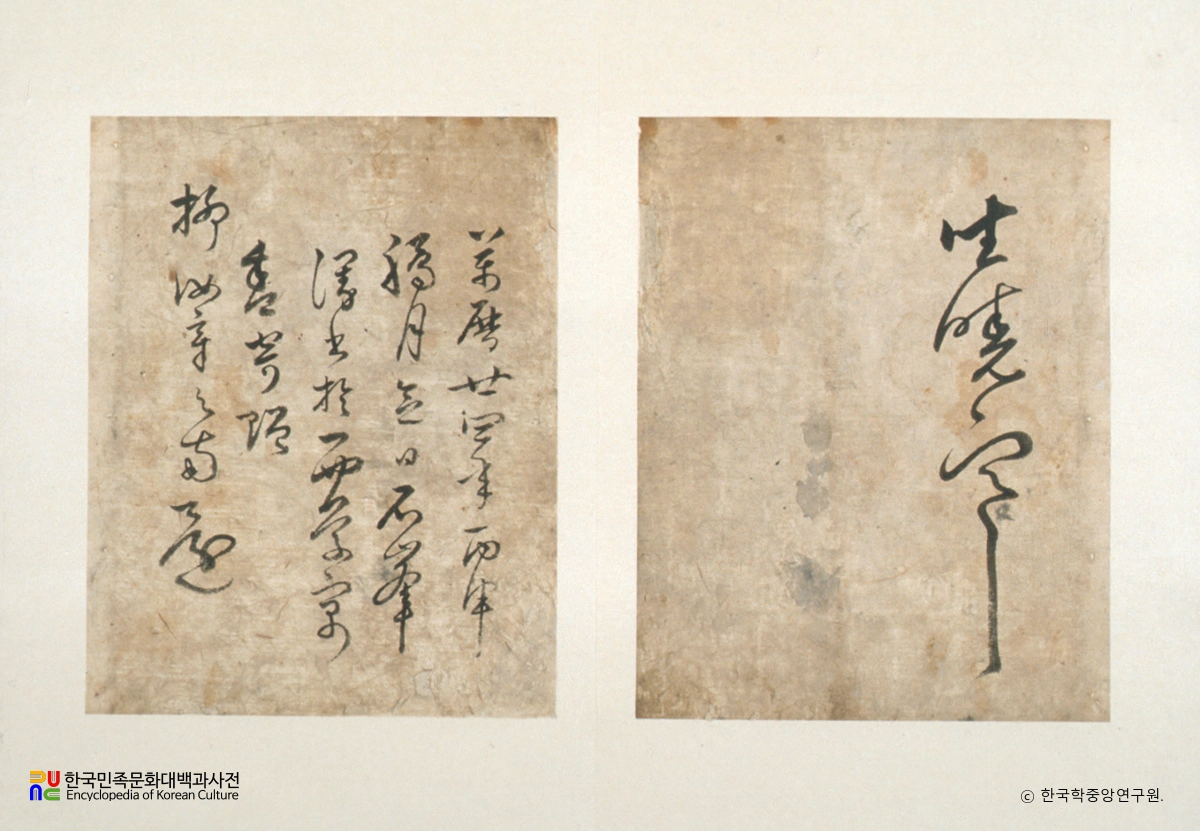 曉
萬曆廿四年丙申
臘月念日石峯
漫書於西京寓
寄贈
柳汝章之南還
한국민족문화대백과사전
Encyclopedia of Korean Culture
ⓒ 한국학중앙연구원.